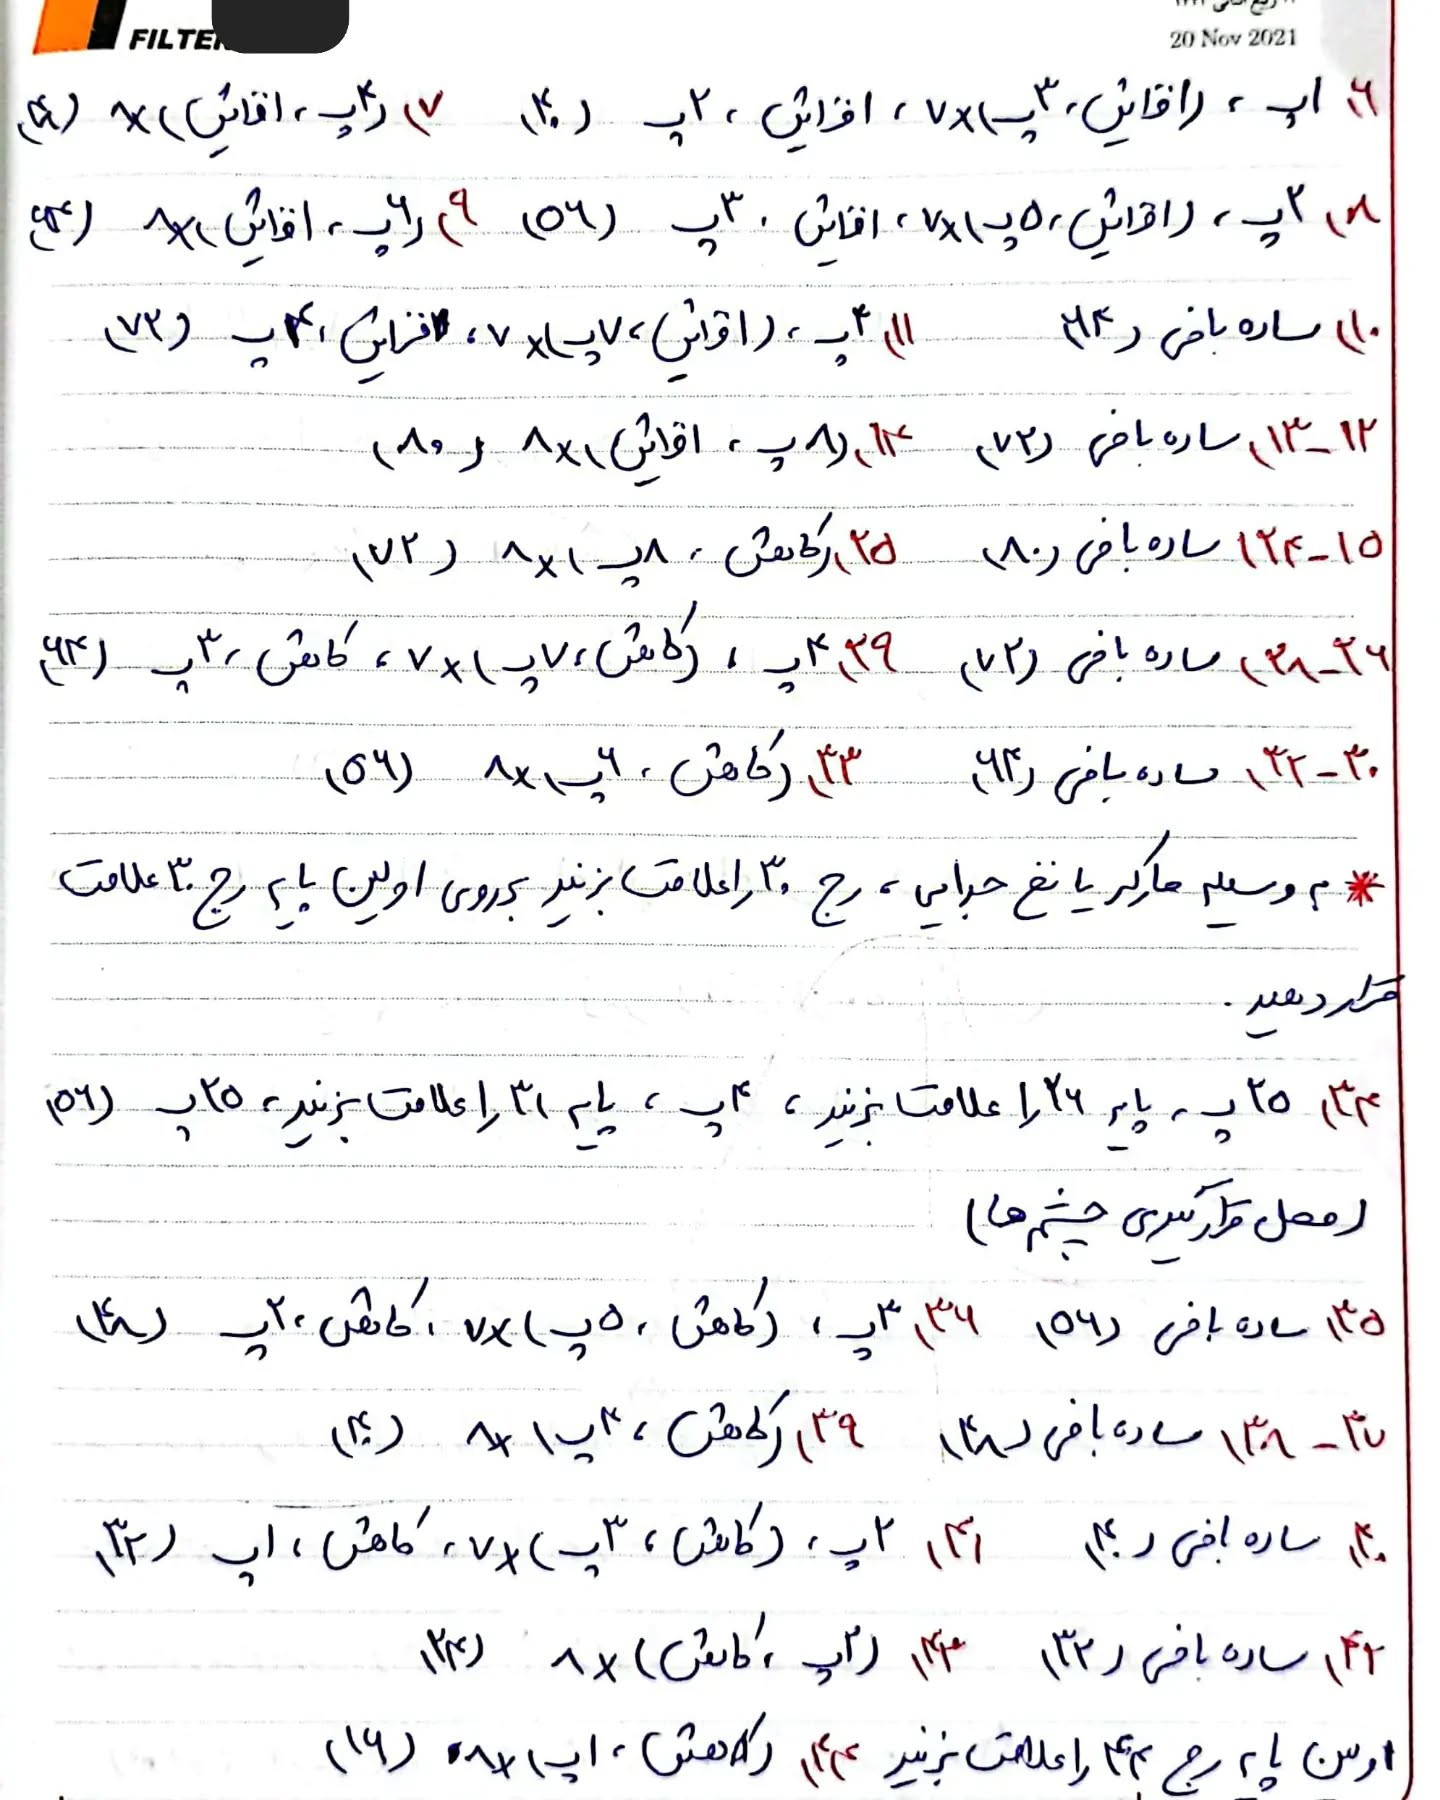 20 Nov 2021
۶) ۱پ ، (افزایش، ۳پ)×۷ ، افزایش ، ۲پ (۴۰) ۷) (۴پ ، افزایش)×۸ (۴۸)
۸) ۲پ ، (افزایش، ۵پ)×۷ ، افزایش ، ۳پ (۵۶) ۹) (۶پ ، افزایش)×۸ (۶۴)
۱۰) ساده بافی (۶۴) ۱۱) ۳پ ، (افزایش، ۷پ)×۷ ، افزایش ، ۴پ (۷۲)
۱۲-۱۳) ساده بافی (۷۲) ۱۴) (۸پ ، افزایش)×۸ (۸۰)
۱۵-۲۴) ساده بافی (۸۰) ۲۵) (کاهش ، ۸پ)×۸ (۷۲)
۲۶-۲۸) ساده بافی (۷۲) ۲۹) ۴پ ، (کاهش، ۷پ)×۷ ، کاهش ، ۳پ (۶۴)
۳۰-۳۲) ساده بافی (۶۴) ۳۳) (کاهش ، ۶پ)×۸ (۵۶)
* به وسیله مارکر یا نخ جدایی ، رج ۳۰ را علامت بزنید بر روی اولین پایه رج ۳۰ علامت
قرار دهید .
۳۴) ۲۵پ ، پایه ۲۶ را علامت بزنید ، ۴پ ، پایه ۳۱ را علامت بزنید ، ۲۵پ (۵۶)
(محل قرارگیری چشم ها)
۳۵) ساده بافی (۵۶) ۳۶) ۳پ ، (کاهش ، ۵پ)×۷ ، کاهش ، ۲پ (۴۸)
۳۷-۳۸) ساده بافی (۴۸) ۳۹) (کاهش ، ۴پ)×۸ (۴۰)
۴۰) ساده بافی (۴۰) ۴۱) ۲پ ، (کاهش ، ۳پ)×۷ ، کاهش ، ۱پ (۳۲)
۴۲) ساده بافی (۳۲) ۴۳) (۲پ ، کاهش)×۸ (۲۴)
اولین پایه رج ۴۴ را علامت بزنید ۴۴) (کاهش ، ۱پ)×۸ (۱۶)